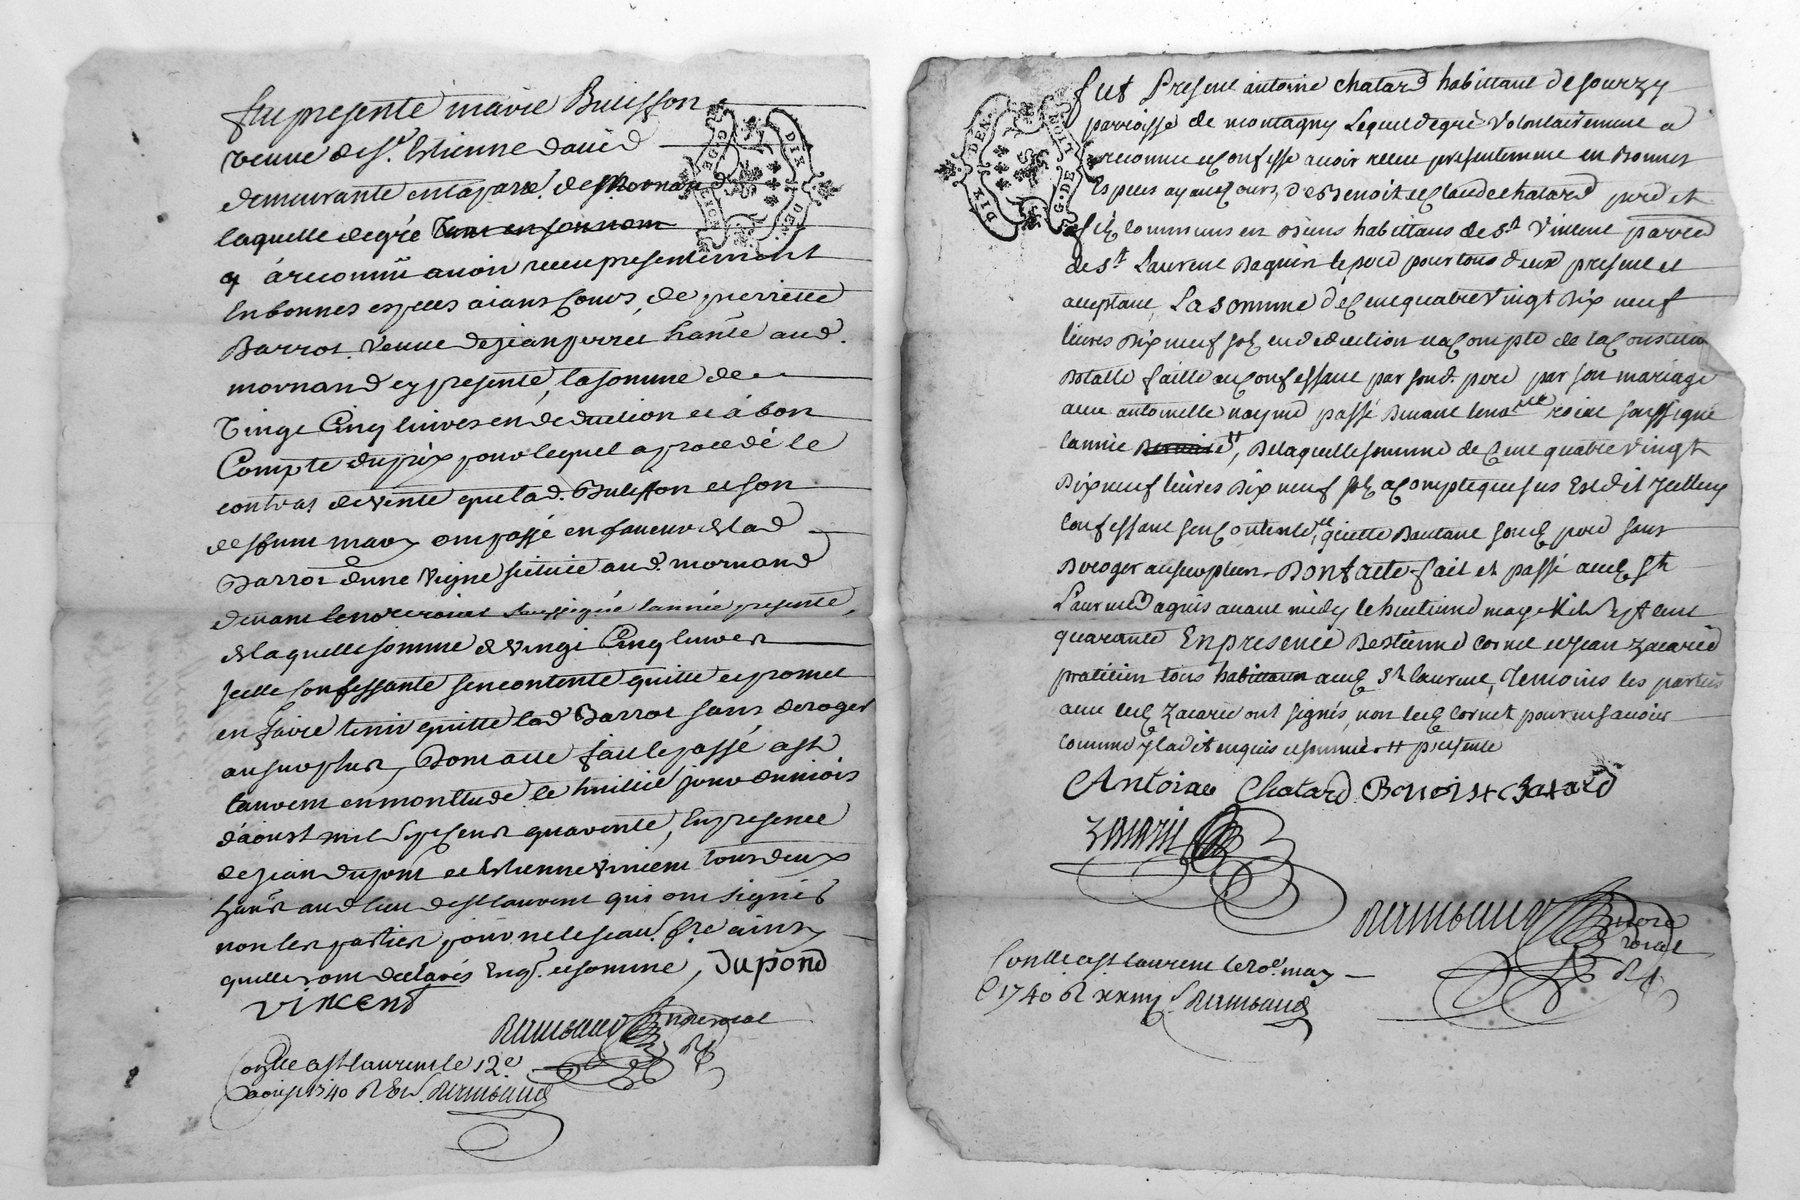 fut presente marie Buisson
veuve de Sr. Estienne david
demeurante en la parse. de Mornand
laquelle de gré
à reconnû avoir receu presentement
en bonnes especes aians cours, de pierrette
Barrot veuve de jean perret hante aud.
mornand cy presente, la somme de
vingt cinq livres en deduction et à bon
compte du prix pour lequel a procedé le
contrat de vente que lad. Buisson et son
deffunt mary ont passé en faveur de lad
Barrot d'une vigne scituée aud. mornand
devant le nore roial soussigné l'année presente,
de laquelle somme de vingt cinq livres
jcelle confessante sen contente quitte et promet
en faire tenir quitte lad Barrot sans deroger
au surplus, Dont acte fait et passé a st
laurent
d'aoust mil sept cent quarante, en presence
de jean dupont et estienne vincent tous deux
hants aud lieu de st laurent qui ont signés
non les parties pour ne le scau. fre ainsy
quelles ont declarés enq. et sommé, Dupond
vincent
nore roial
Conlle a st laurent le 12e
aoust 1740
DIX DEN.
G. DE LION
fut Present antoine chatard habittant de sourzy
parroisse de montagny Lequel de gré volontairement a
reconnu et confessé avoir receu presentement en Bonnes
Especes ayant cours, de Benoit et Claude chatard pere et
fils communs en biens habittans de St Vincent parre
de St Laurent Dagnis le pere pour tous deux present et
acceptant, La somme de Cent quatre vingt Dix neuf
livres Dix neuf sols en deduction et a Compte de la Constitution
Dotalle faitte au Confessant par sond. pere par son mariage
avec antoinette passé devant le nore roial soussigné
lannée, De laquelle somme de Cent quatre vingt
Dix neuf livres Dix neuf sols a compte que sus Est dit Jcelluy
Confessant sen Contente, quitte Dautant sond pere sans
Deroger au surplus. Dont acte fait et passé aud St
Laurent Dagnis avant midy le huitieme may Mil Sept cent
quarante En presence De etienne cornet et jean zacarie
praticien tous habittans aud St laurent, Temoins les parties
avec led zacarie ont signés, non led Cornet pour ne scavoir
comme jl a dit enquis et sommé presente
Antoine Chatard Benoist Chatard
zacarie
nore
roial
Conlle a st laurent le 20e. may
1740
DIX DEN.
G. DE LION